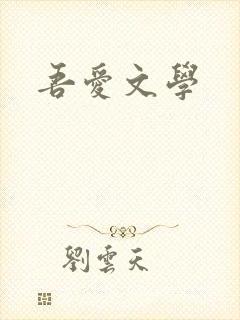 吾愛文學
劉雲天